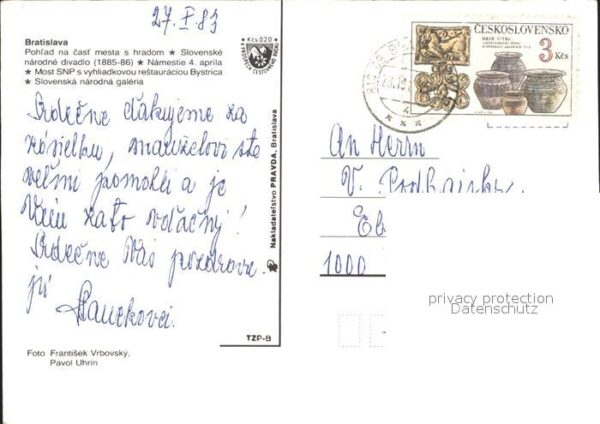 27. X 83
Bratislava
Pohľad na časť mesta s hradom ★ Slovenské
národné divadlo (1885-86) ★ Námestie 4. apríla
★ Most SNP s vyhliadkovou reštauráciou Bystrica
★ Slovenská národná galéria
Kčs 0,20
Srdečne ďakujeme za
zásielku, manželovi ste
veľmi pomohli a je
Vám za to vďačný!
Srdečne Vás pozdravu-
jú
Nakladateľstvo PRAVDA, Bratislava
TZP-B
Foto František Vrbovský,
Pavol Uhrín
ČESKOSLOVENSKO
3 Kčs
An Herrn
V.
Eb
1000
privacy protection
Datenschutz